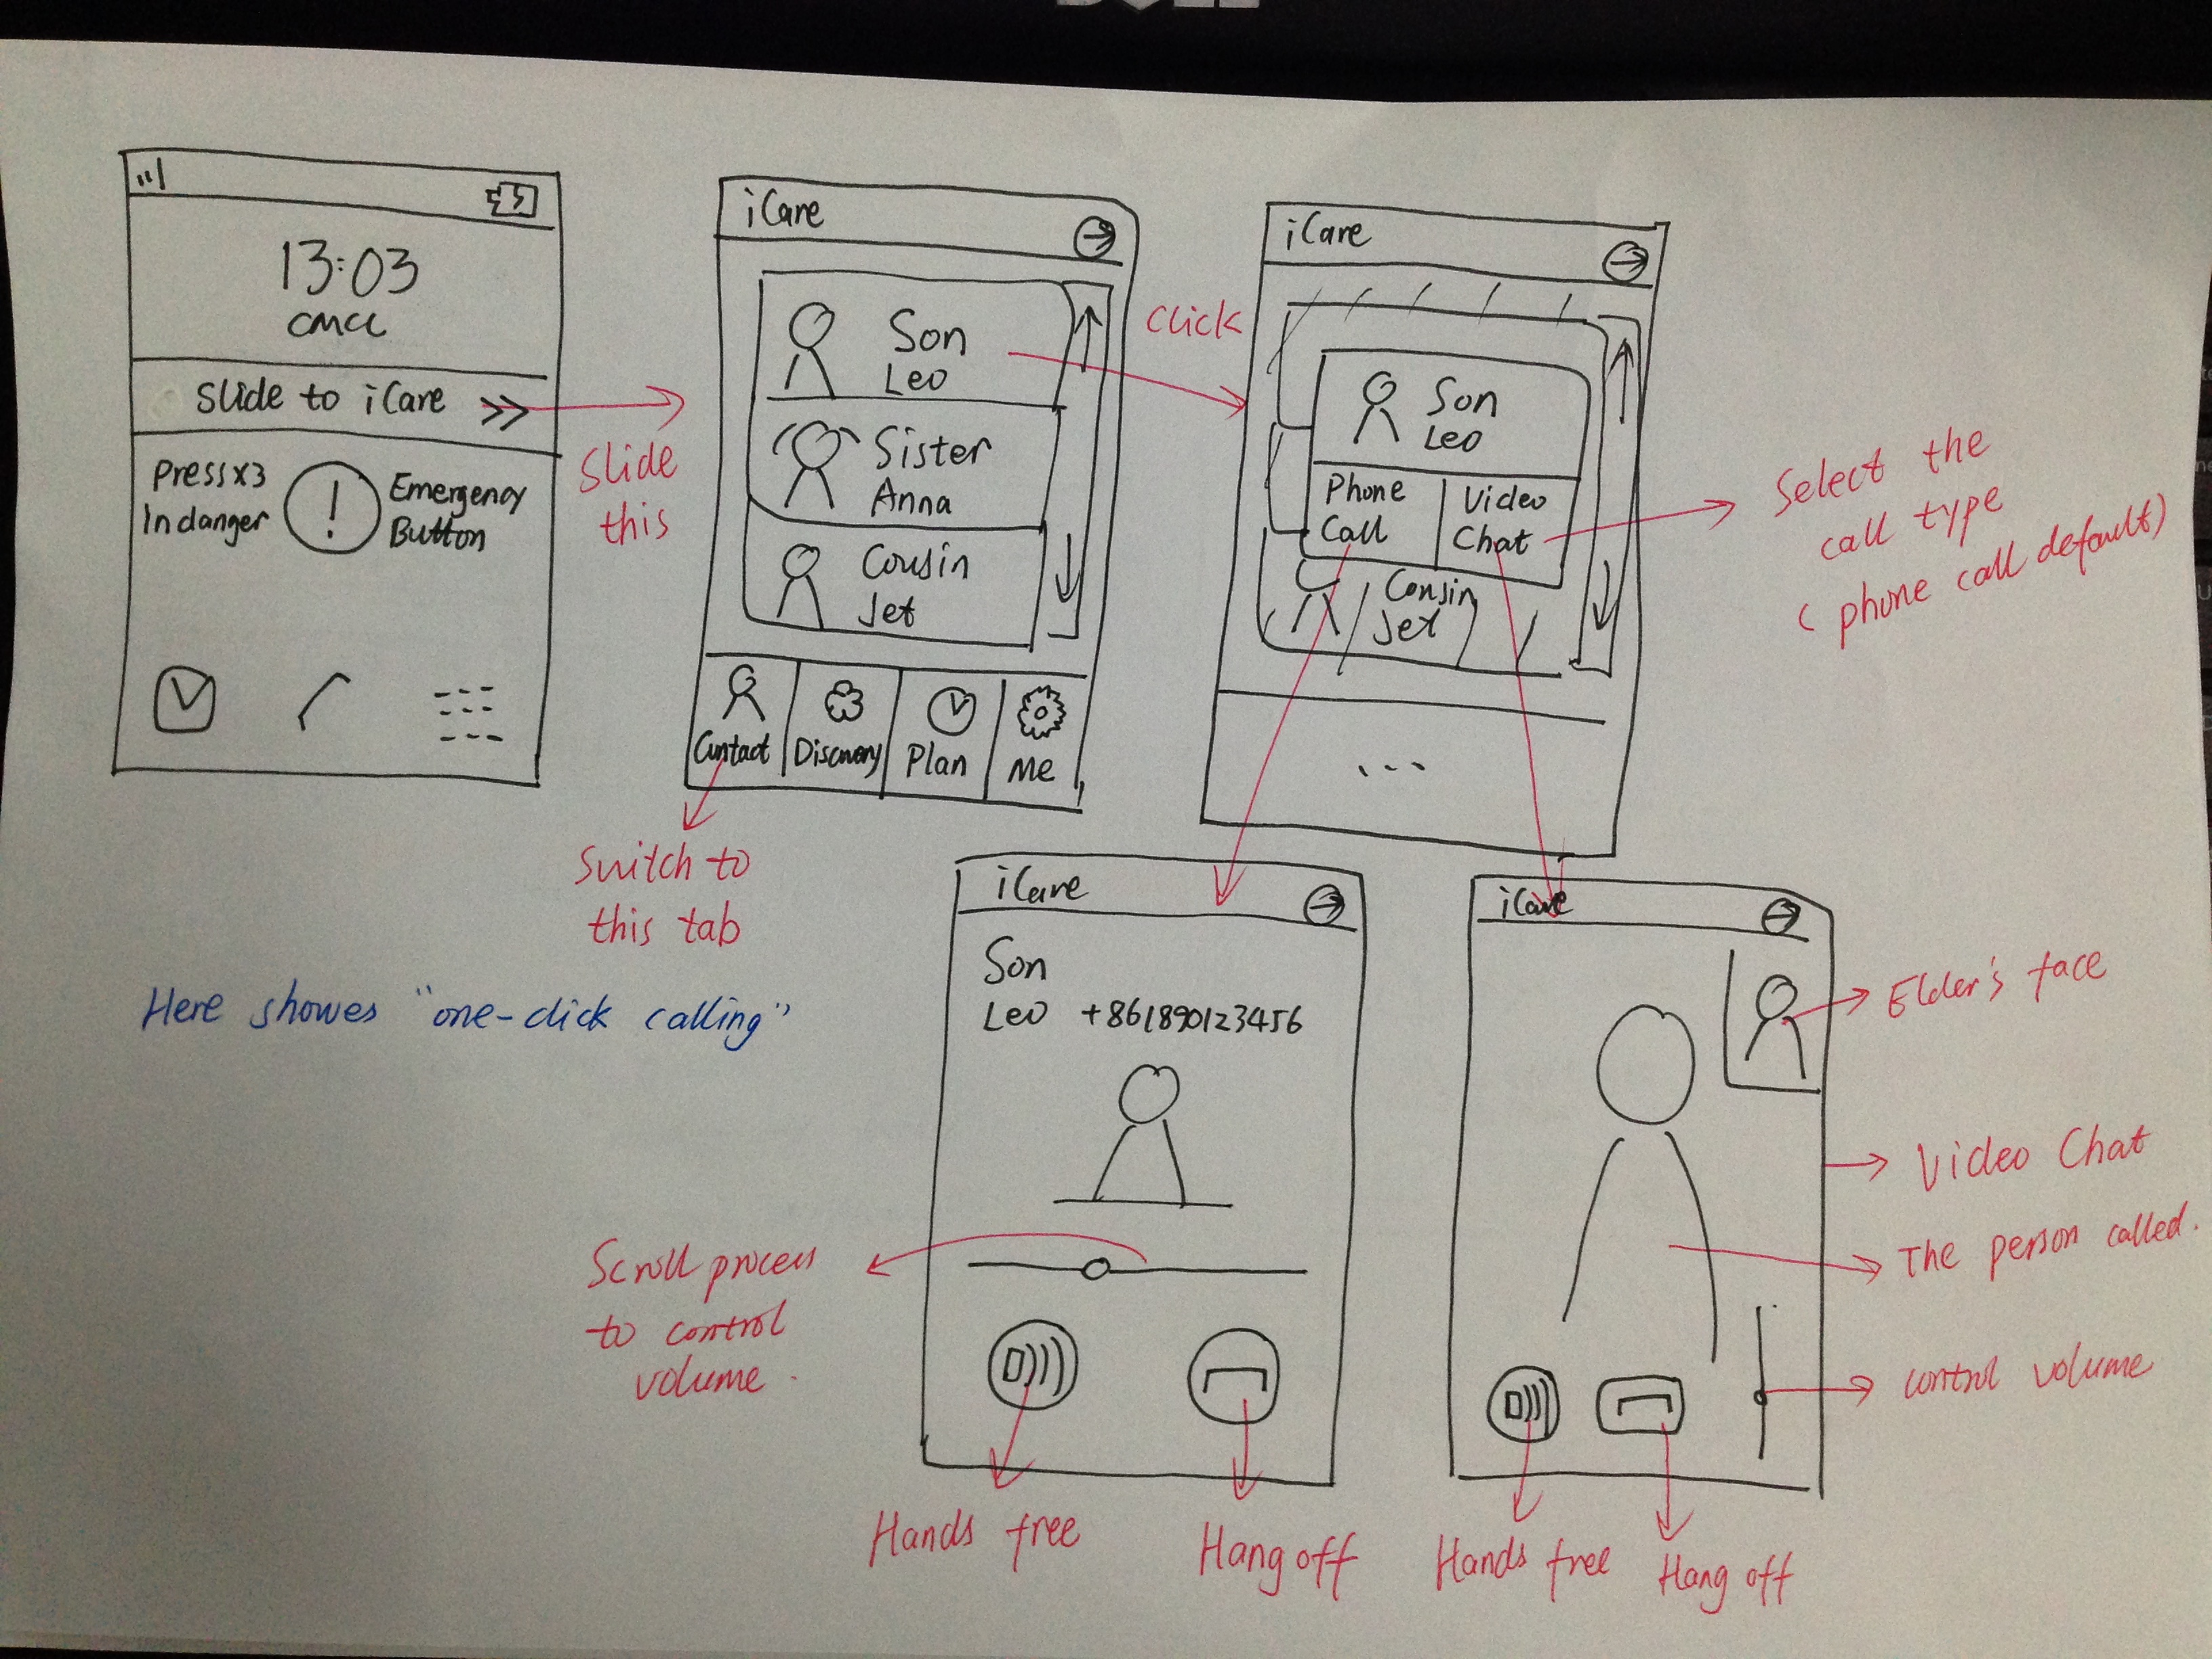 13:03
CMCC
Slide to iCare >>
Press x3
In danger
!
Emergency
Button
Slide
this
iCare
Son
Leo
Sister
Anna
Cousin
Jet
Contact
Discovery
Plan
Me
Switch to
this tab
Click
iCare
Son
Leo
Phone
Call
Video
Chat
Cousin
Jet
...
Select the
call type
(phone call default)
Here showes "one-click calling"
iCare
Son
Leo +861890123456
Scroll process
to control
volume.
Hands free
Hang off
iCare
Elder's face
Video Chat
The person called.
control volume
Hands free
Hang off